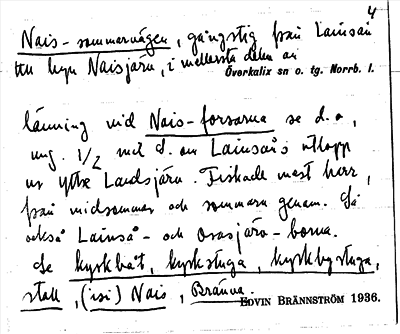 4
Nais-sommarvägen, gångstig från Lainsån
till byn Naisjärv, i mellersta delen av
Överkalix sn o. tg. Norrb. l.
länning vid Nais-forsarna se d.o,
ung. 1/2 mil d. om Lainsåns utlopp
ur Yttre Landsjärv. Fiskade mest herr,
från midsommar och sommarn genom. Så
också Lainså- och Orasjärv-borna.
Se kyrkbåt, kyrkstuga, kyrkbystuga,
stall, (isi) Nais, Bränna.
EDVIN BRÄNNSTRÖM 1936.